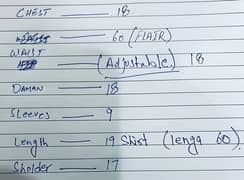 CHEST — 18
— 60 (FLAIR)
WAIST — (Adjustable) 18
DAMAN — 18
Sleeves — 9
Length — 19 Shirt (lenga 60)
Sholder — 17